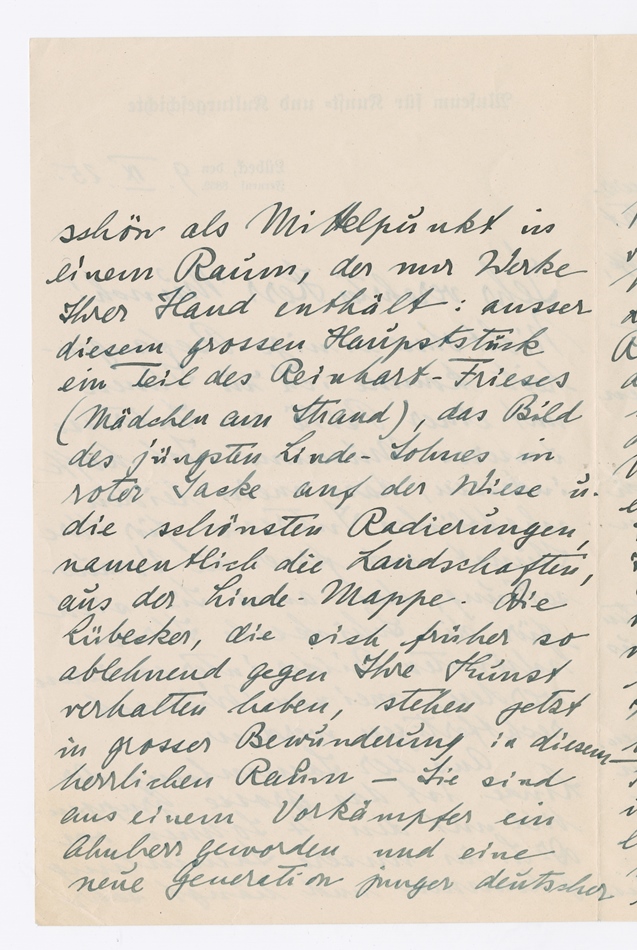 schön als Mittelpunkt in
einem Raum, der nur Werke
Ihrer Hand enthält: ausser
diesem grossen Hauptstück
ein Teil des Reinhart-Frieses
(Mädchen am Strand), das Bild
des jüngsten Linde-Sohnes in
roter Jacke auf der Wiese u.
die schönsten Radierungen,
namentlich die Landschaften,
aus der Linde-Mappe. Die
Lübecker, die sich früher so
ablehnend gegen Ihre Kunst
verhalten haben, stehen jetzt
in grosser Bewunderung in diesem
herrlichen Raum — Sie sind
aus einem Vorkämpfer ein
Ahnherr geworden und eine
neue Generation junger deutscher